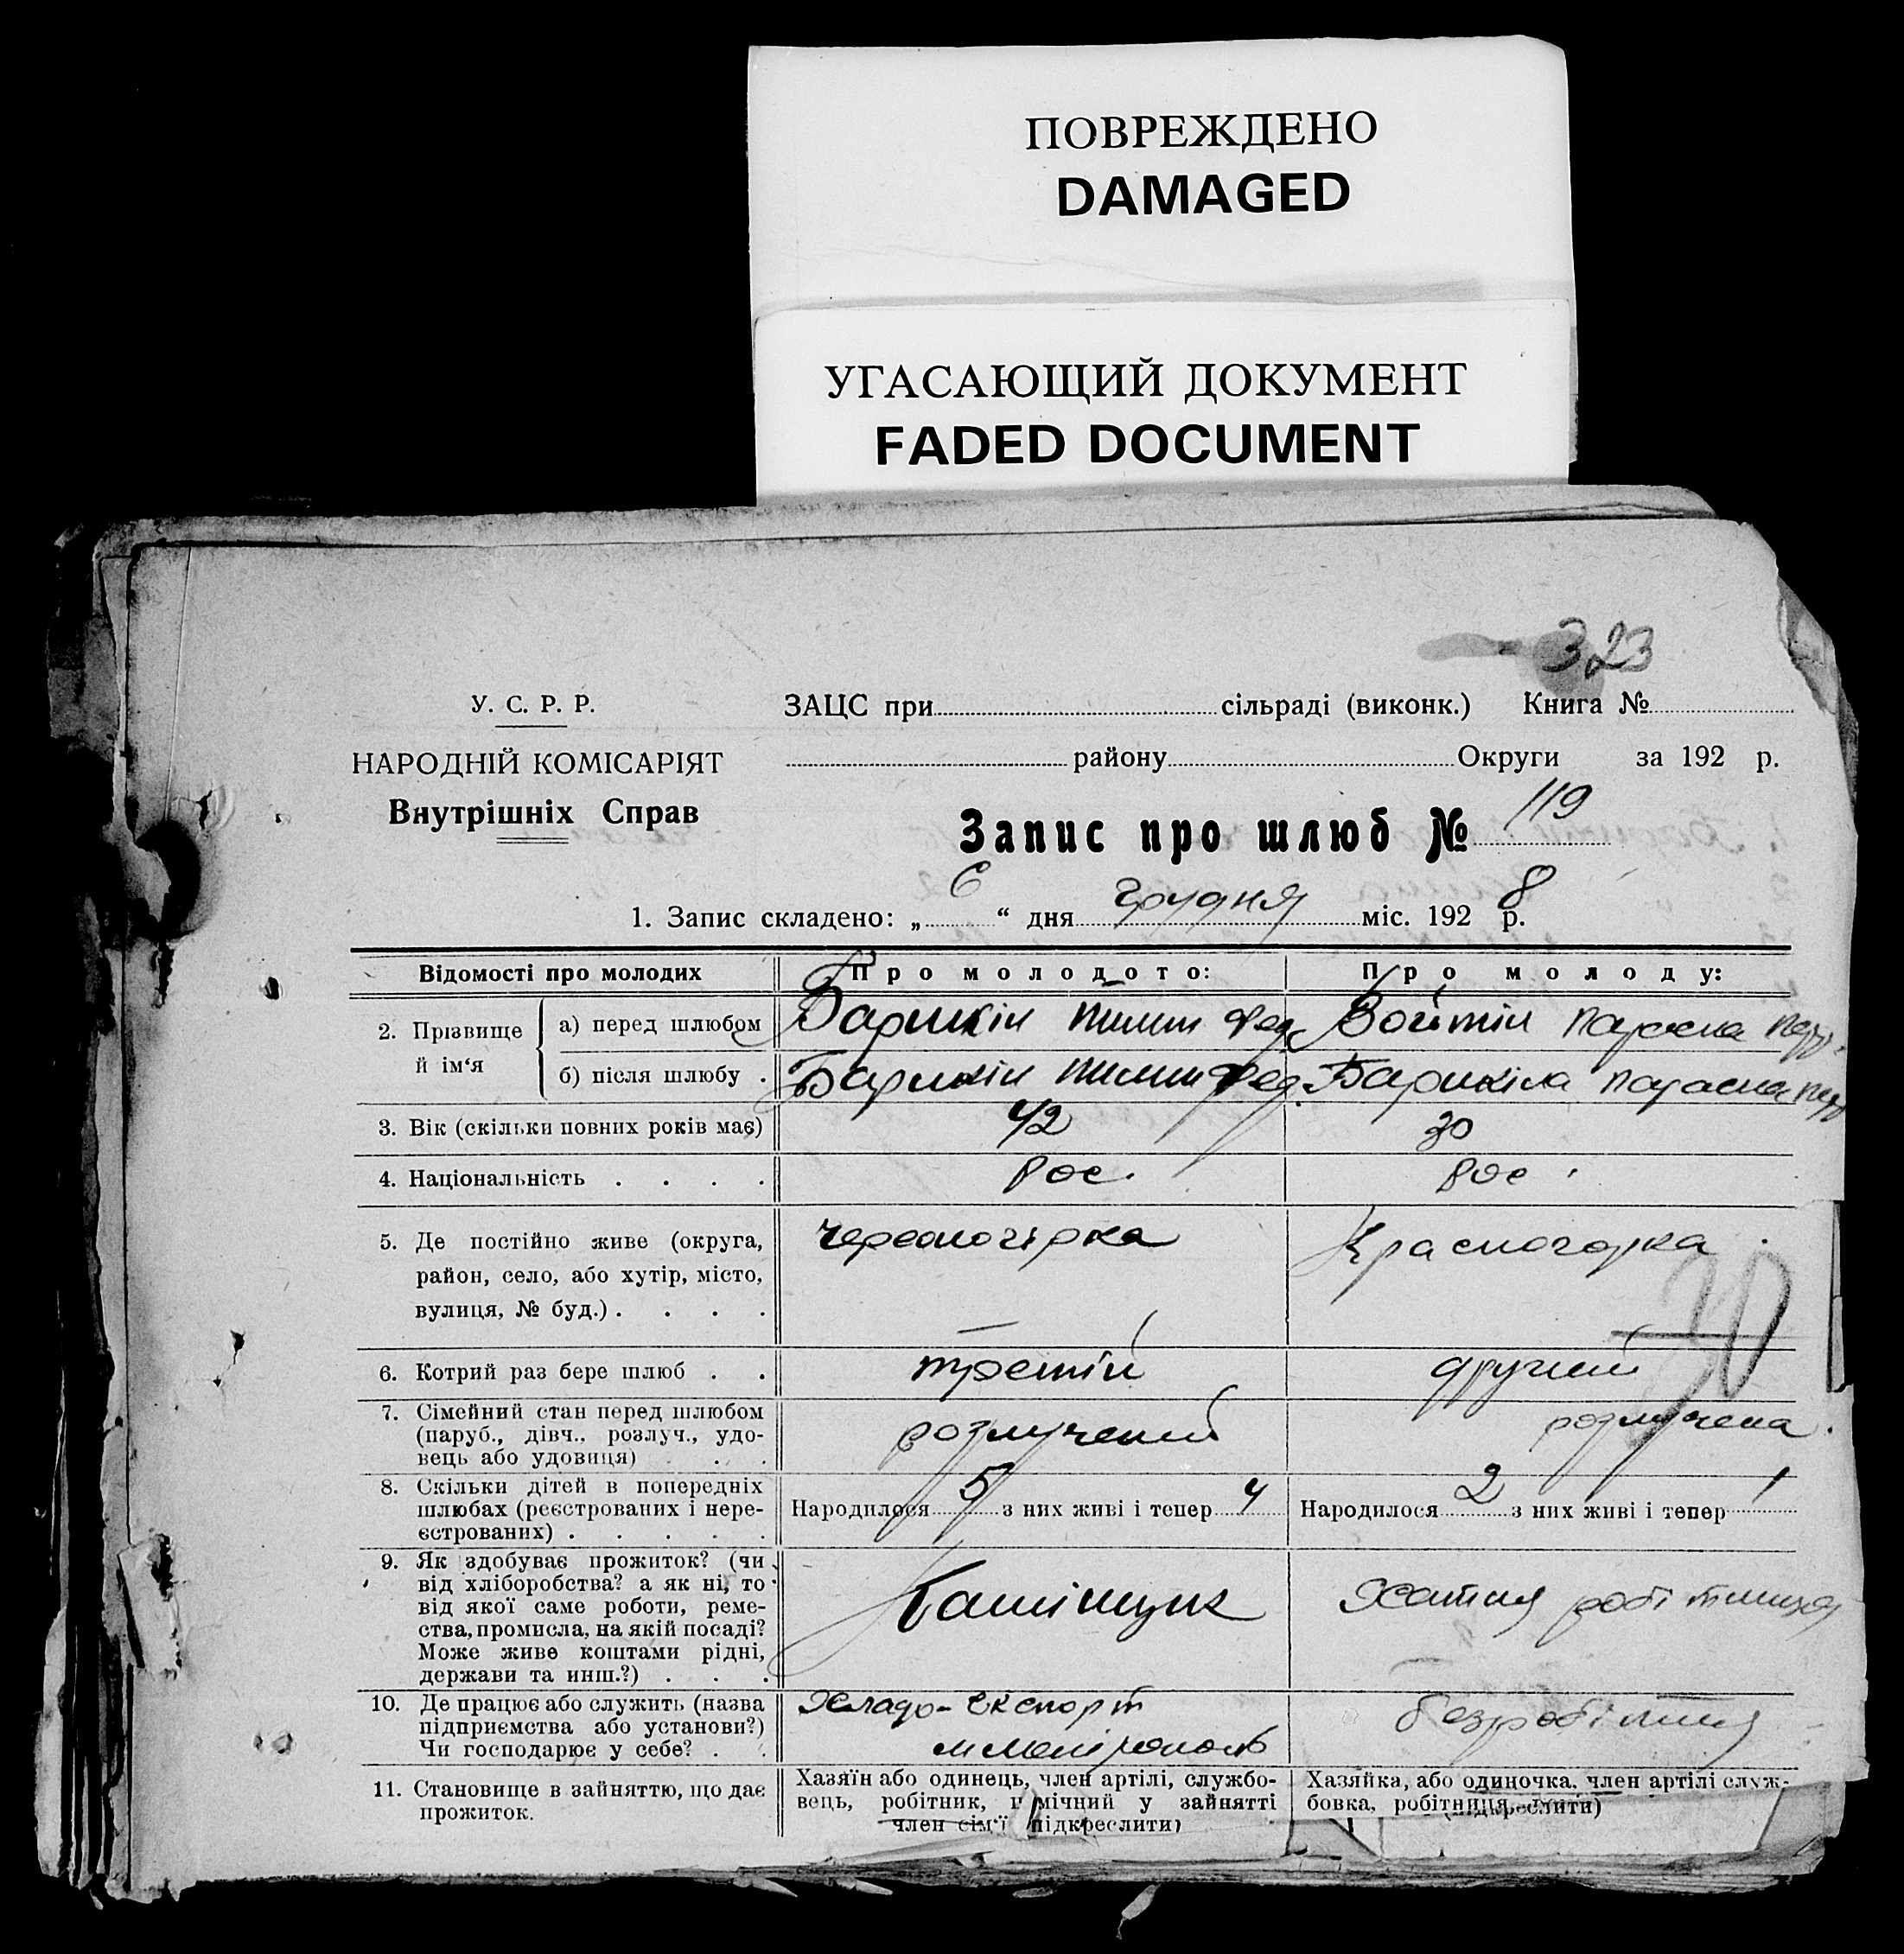 ПОВРЕЖДЕНО
DAMAGED
УГАСАЮЩИЙ ДОКУМЕНТ
FADED DOCUMENT
323
У. С. Р. Р.
НАРОДНІЙ КОМІСАРІЯТ
Внутрішніх Справ
ЗАЦС при сільраді (виконк.) Книга №
району Округи за 192 р.
Запис про шлюб № 119
1. Запис складено: „6“ дня грудня міс. 1928 р.
Відомості про молодих
Про молодого:
Про молоду:
2. Прізвище й ім‘я
а) перед шлюбом
Барикін Пимин Фед.
Войтін Параска
б) після шлюбу .
Барикін Пимин Фед.
Барикіна Параска
3. Вік (скільки повних років має)
42
30
4. Національність . . . .
Рос.
Рос.
5. Де постійно живе (округа,
район, село, або хутір, місто,
вулиця, № буд.) . . . .
Червоногірка
Красногорка
30
6. Котрий раз бере шлюб . .
третій
другий
7. Сімейний стан перед шлюбом
(паруб., дівч., розлуч., удо-
вець або удовиця) . . .
розлучений
розлучена.
8. Скільки дітей в попередніх
шлюбах (реєстрованих і нере-
єстрованих) . . . . .
Народилося 5 з них живі і тепер 4
Народилося 2 з них живі і тепер 1
9. Як здобуває прожиток? (чи
від хліборобства? а як ні, то
від якої саме роботи, реме-
ства, промисла, на якій посаді?
Може живе коштами рідні,
держави та инш.?) . . .
Хатня робітниця
10. Де працює або служить (назва
підприємства або установи?)
Чи господарює у себе? . .
Хладо-Експорт
м Мелітополь
безробітня
11. Становище в зайняттю, що дає
прожиток.
Хазяїн або одинець, член артілі, службо-
вець, робітник, помічний у зайнятті
член сім‘ї (підкреслити)
Хазяйка, або одиночка, член артілі служ-
бовка, робітниця,
(підкреслити)